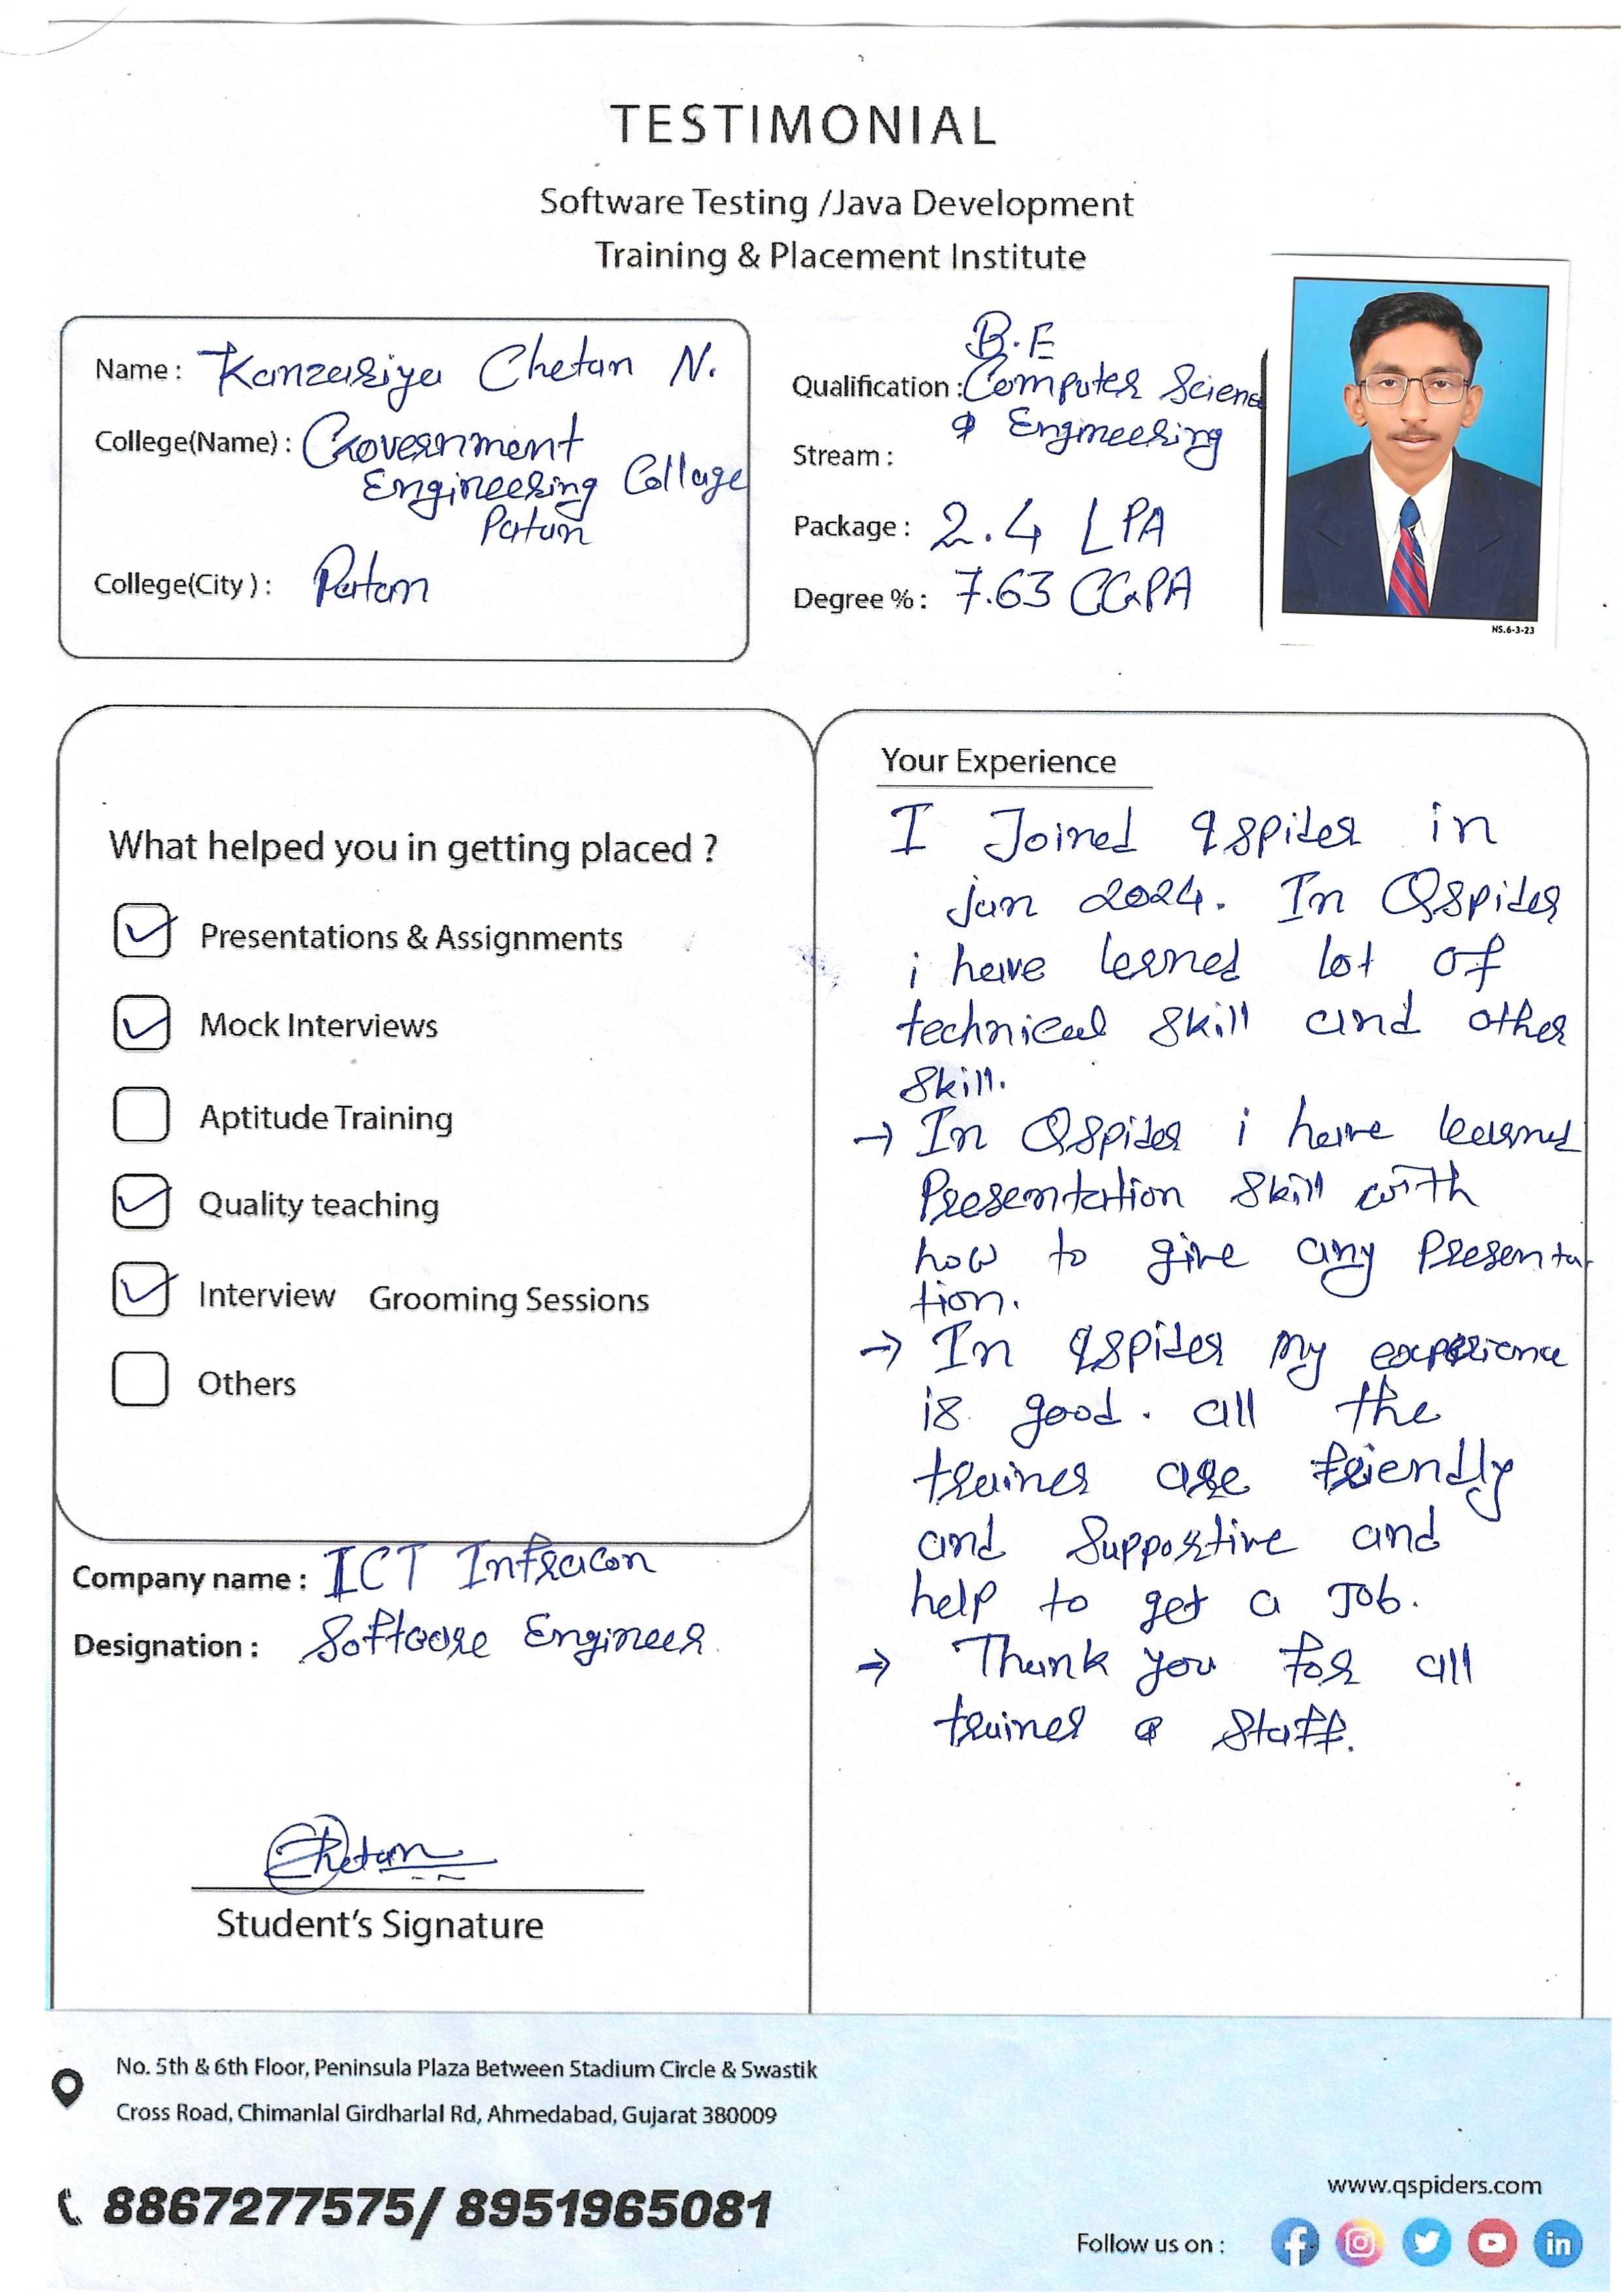 TESTIMONIAL
Software Testing /Java Development
Training & Placement Institute
Name : Kanzariya Chetan N.
College(Name) : Government
Engineering Collage
Patan
College(City) : Patan
B.E
Qualification : Computer Science
& Engineering
Stream :
Package : 2.4 LPA
Degree % : 7.63 CGPA
NS.6-3-23
What helped you in getting placed ?
Presentations & Assignments
Mock Interviews
Aptitude Training
Quality teaching
Interview Grooming Sessions
Others
Company name : ICT Infracon
Designation : Software Engineer
Chetan
Student's Signature
Your Experience
I Joined qspider in
jan 2024. In Qspider
i have lerned lot of
technical skill and other
skill.
→ In Qspider i have learned
Presentation skill with
how to give any Presenta
tion.
→ In qspider my experience
is good. all the
trainer are friendly
and supportive and
help to get a Job.
→ Thank you for all
trainer & staff.
No. 5th & 6th Floor, Peninsula Plaza Between Stadium Circle & Swastik
Cross Road, Chimanlal Girdharlal Rd, Ahmedabad, Gujarat 380009
8867277575/ 8951965081
www.qspiders.com
Follow us on :